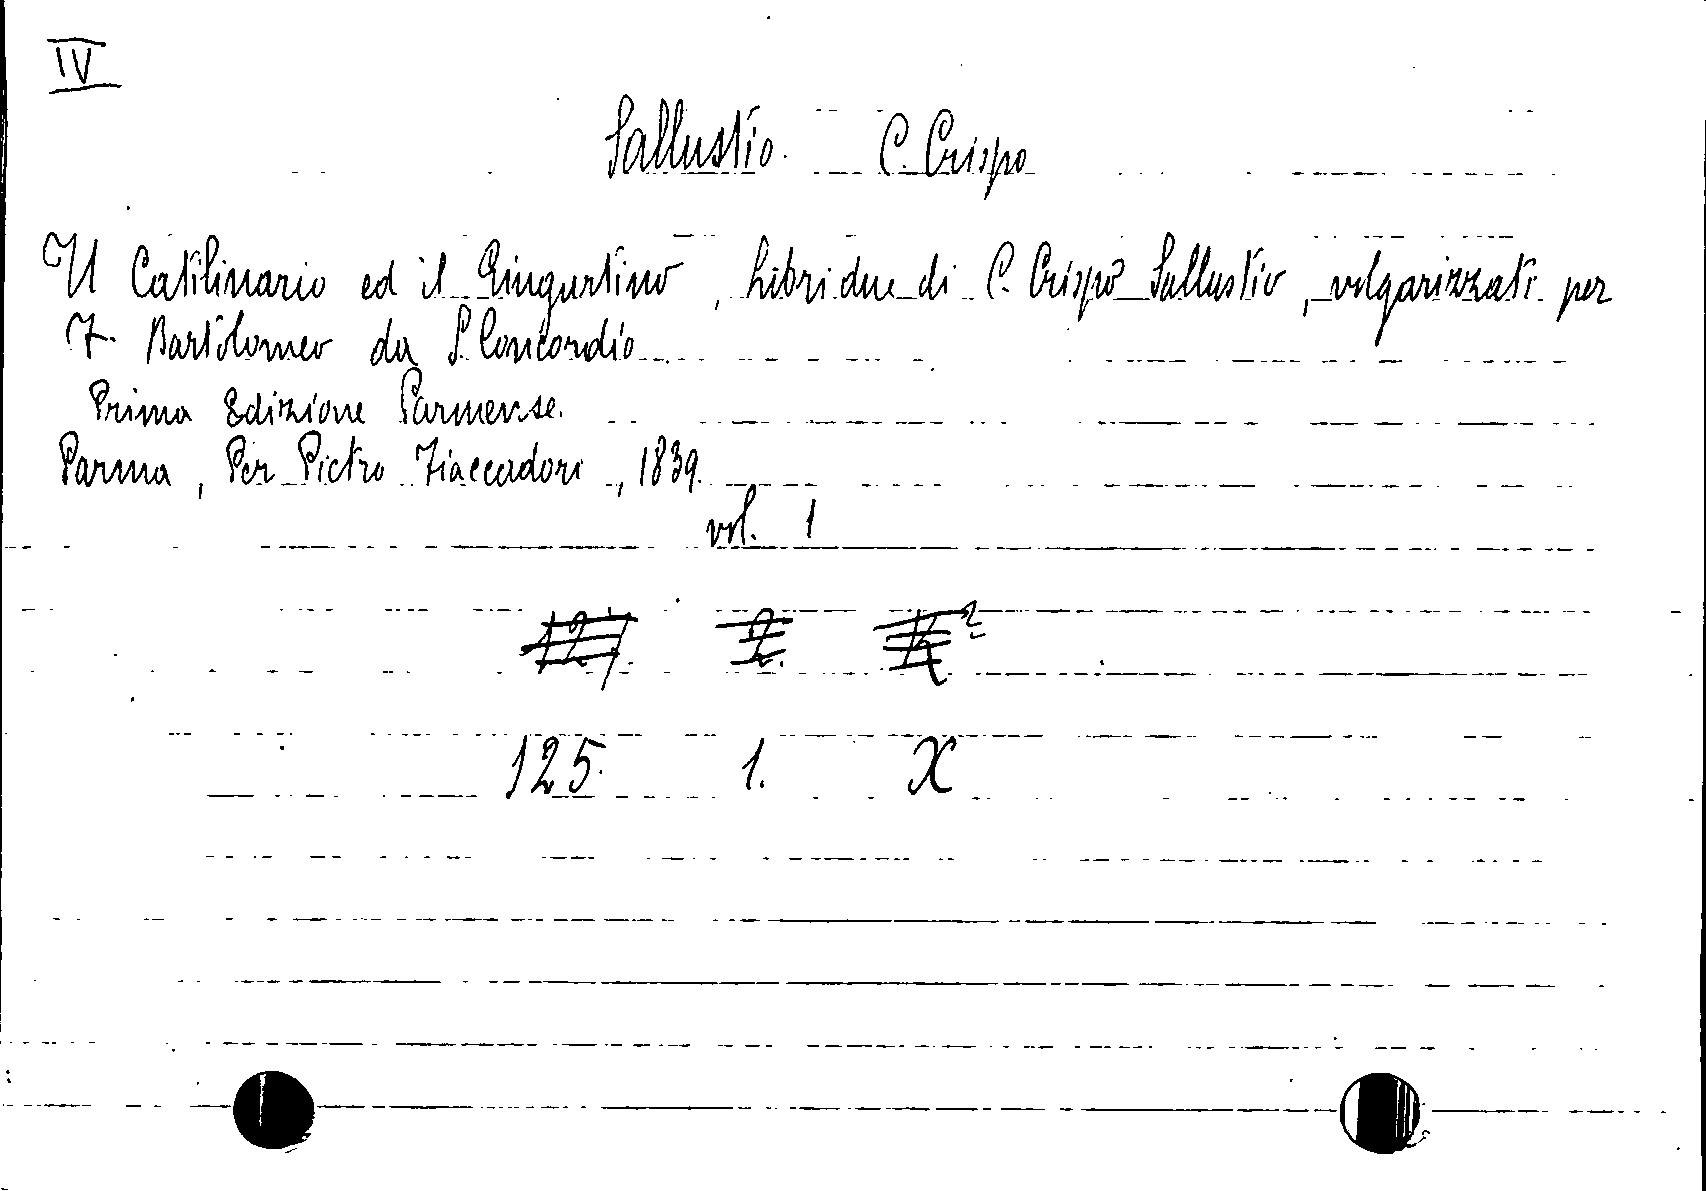 IV
Sallustio. C. Crispo
Il Catilinario ed il Giugurtino, Libri due di C. Crispo Sallustio, volgarizzati per
F. Bartolomeo da S. Concordio
Prima Edizione Parmense.
Parma, Per Pietro Fiaccadori, 1839.
vol. 1
127 2.
125. 1. X